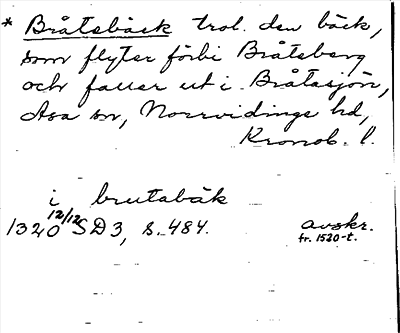 * Bråtebäck trol. den bäck,
som flyter förbi Bråteberg
och faller ut i Bråtasjön,
Asa sn, Norrvidinge hd,
Kronob. l.
i brutabäk
1320 12/12 SD3, s. 484. avskr.
fr. 1520-t.